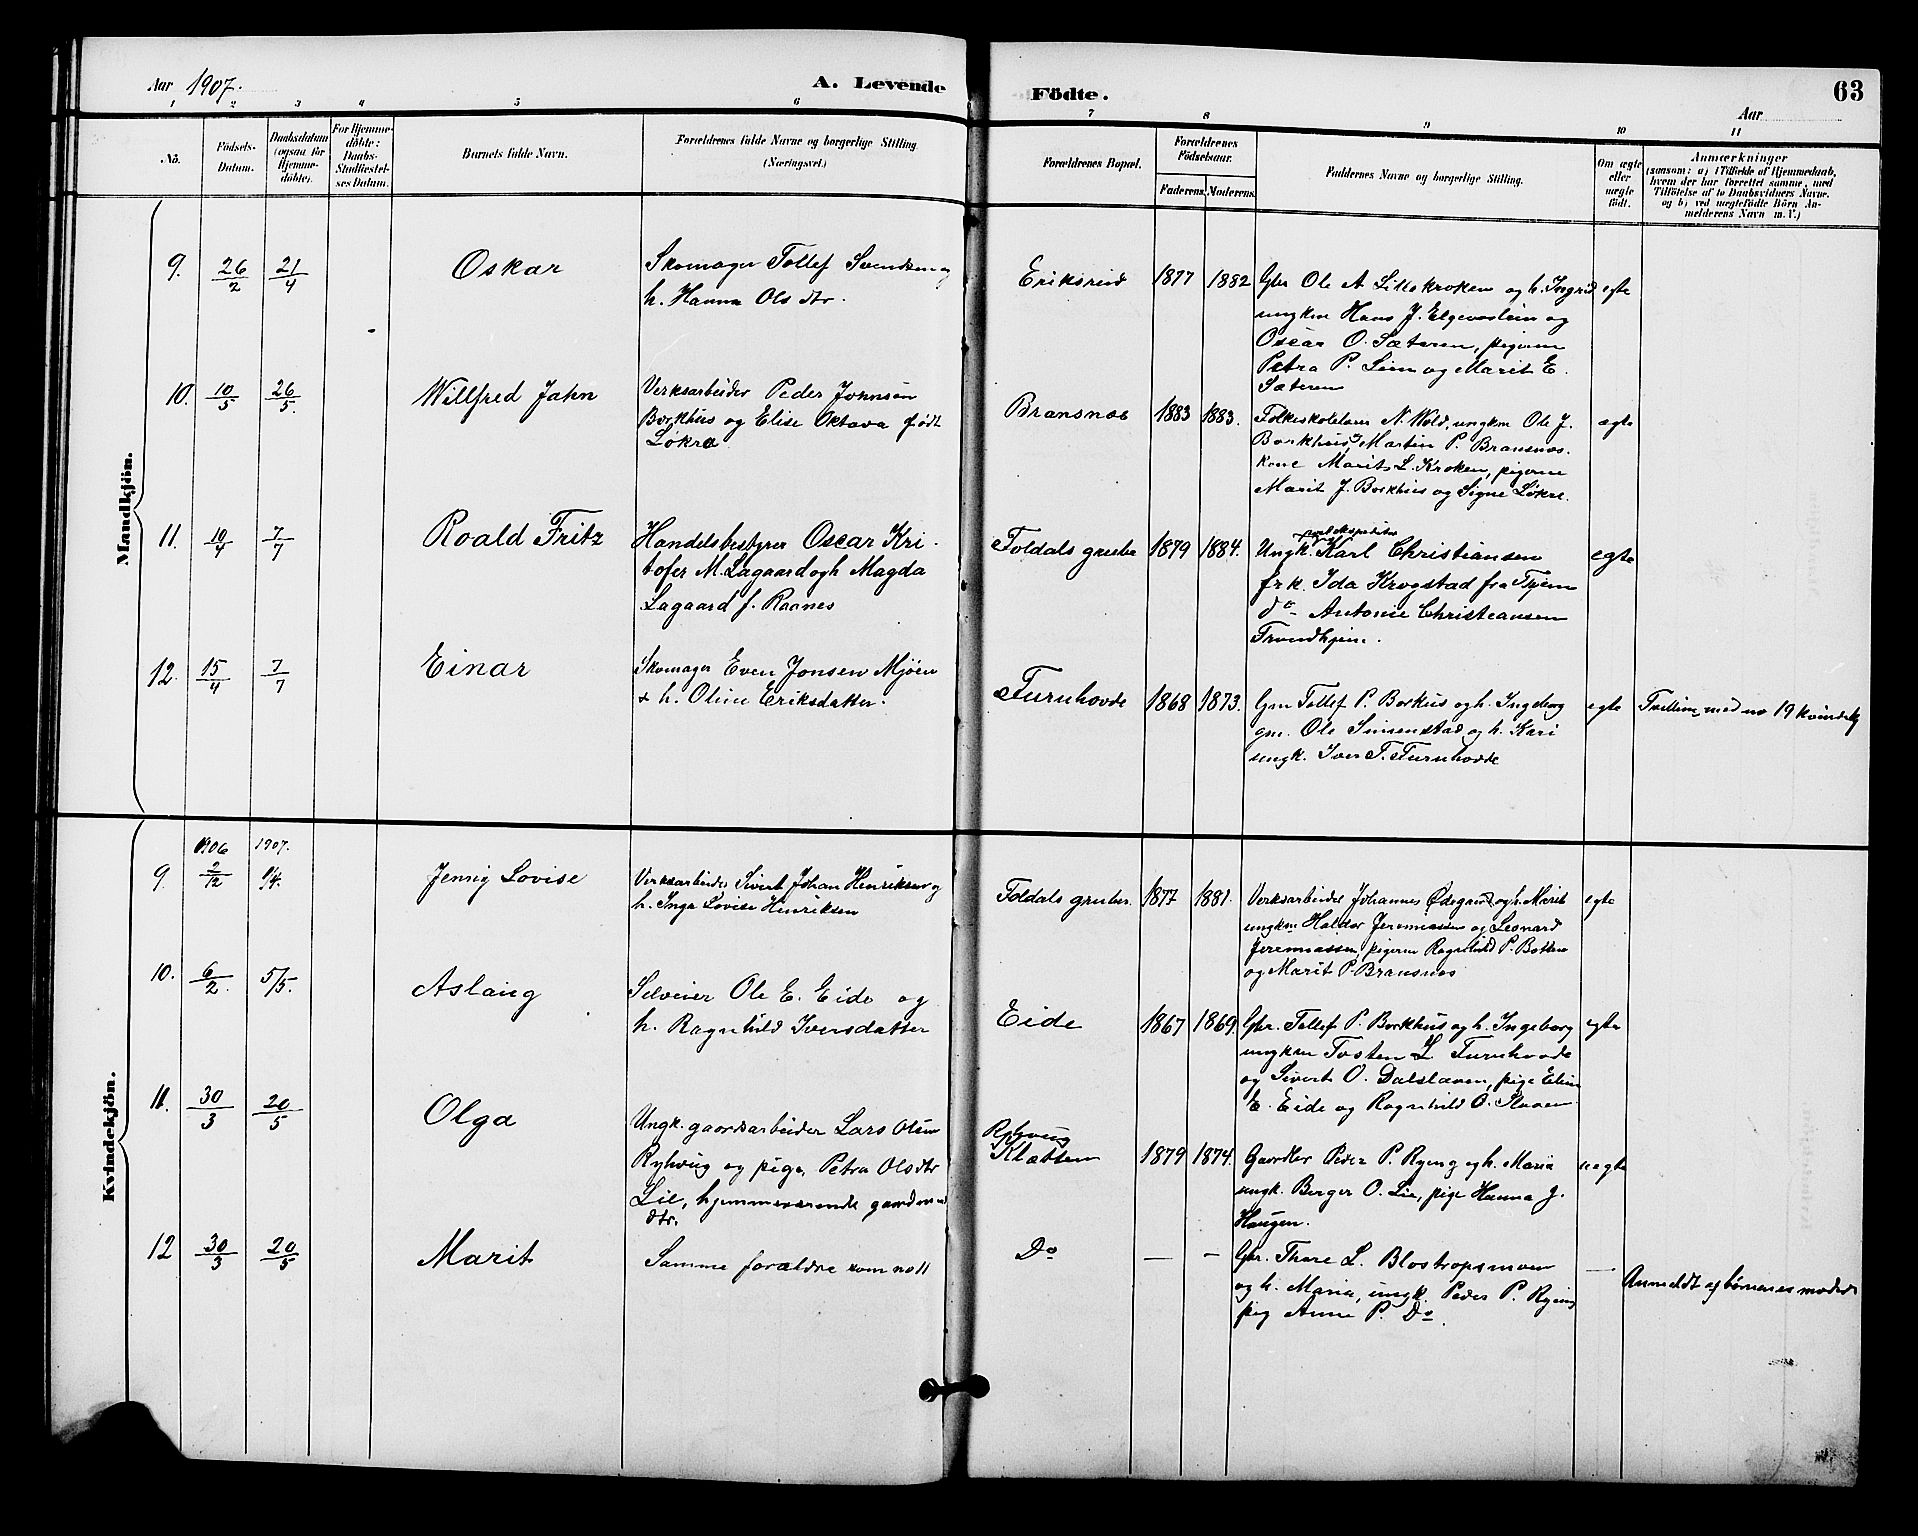 Aar 1907. A. Levende Födte. 63
Aar
1 2 3 4 5 6 7 8 9 10 11
No.
Födsels-
Datum.
Daabsdatum
(ogsaa for
Hjemme-
döbte).
For Hjemme-
döbte:
Daabs-
Stadfæstel-
ses Datum.
Barnets fulde Navn.
Forældrenes fulde Navne og borgerlige Stilling
(Næringsvei.)
Forældrenes Bopæl.
Forældrenes
Födselsaar.
Faderens. Moderens.
Faddernes Navne og borgerlige Stilling.
Om ægte
eller
uægte
født.
Anmærkninger
(saasom: a) i Tilfælde af Hjemmedaab,
hvem der har forrettet samme, med
Tilföielse af to Daabsvidners Navne,
og b) ved uægtefödte Börn An-
melderens Navn m. V.)
Mandkjön.
9. 26/2 21/4 Oskar
Skomager Tollef Svendsen og
h. Hanna Olsdtr.
Eriksrud 1877 1882
Gbr Ole A Lillekroken og h. Ingrid
ungkm Hans J. Elgevasslien og
Oscar O. Sæteren, pigerne
Petra P. Lien og Marit E.
Sæteren
egte
10. 10/5 26/5. Willfred Jahn
Verksarbeider Peder Johnsen
Borkhus og Elise Oktava født
Løkra
Bransnes 1883 1883.
Folkeskolelærer N. Wold, ungkm Ole J.
Borkhus, Martin P. Bransnes.
kone Marit L. Kroken, pigerne
Marit J. Borkhus og Signe Løkre.
ægte
11. 10/4 7/7 Roald Fritz
Handelsbestyrer Oscar Kri-
tofer M. Lagaard og h Magda
Lagaard f. Raanes
Foldals grube 1879 1884.
Ungk. Karl Christiansen
frk. Ida Krogstad fra Tjem
do Antonie Christeansen
Trondhjem.
egte
12. 15/4 7/7 Einar
Skomager Even Jonsen Mjöen
& h. Oline Eriksdatter.
Furuhovde 1868 1873.
Gm Tollef P. Borkus og h. Ingeborg
gm. Ole Simenstad og h. Kari
ungk. Iver T. Furuhovde
egte
Tvilling med no 19 kvindekj
Kvindekjön.
9. 1906 2/12 1907. 1/4. Jenny Lovise
Verksarbeider Sivert Johan Henriksen og
h. Inga Lovise Henriksen
Foldals gruber. 1877 1881.
Verksarbeider Johannes Ødegaard og h. Marit
ungkm Haldor Jeremiassen og Leonard
Jeremiassen pigerne Ragnhild P. Botten
og Marit P. Bransnes
egte
10. 6/2. 5/5. Aslaug
Selveier Ole E. Eide og
h. Ragnhild Iversdatter
Eide 1867 1869.
Gbr. Tollef P. Borkhus og h. Ingeborg
ungkm Tosten L Furuhovde
og Sivert O. Dalslaaen, pige Eline
E. Eide og Ragnhild O. Slaaen
egte
11. 30/3 20/5 Olga
Ungk. gaardsarbeider Lars Olsen
Ryhvug og pige Petra Olsdtr
Lie, hjemmeværende gaardmand
dtr.
Ryhvug
Klætten 1879 1874.
Gaardbr Peder P. Ryeng og h. Maria
ungk. Berger O. Lie, pige Hanna J.
Haugen.
uegte
12 30/3 20/5 Marit
Samme forældre som no 11
Do — —
Gbr. Thore L. Blostropsmoen
og h. Maria, ungk. Peder P. Ryeng
pig Anne P. Do.
—
Anmeldt af børnenes moder